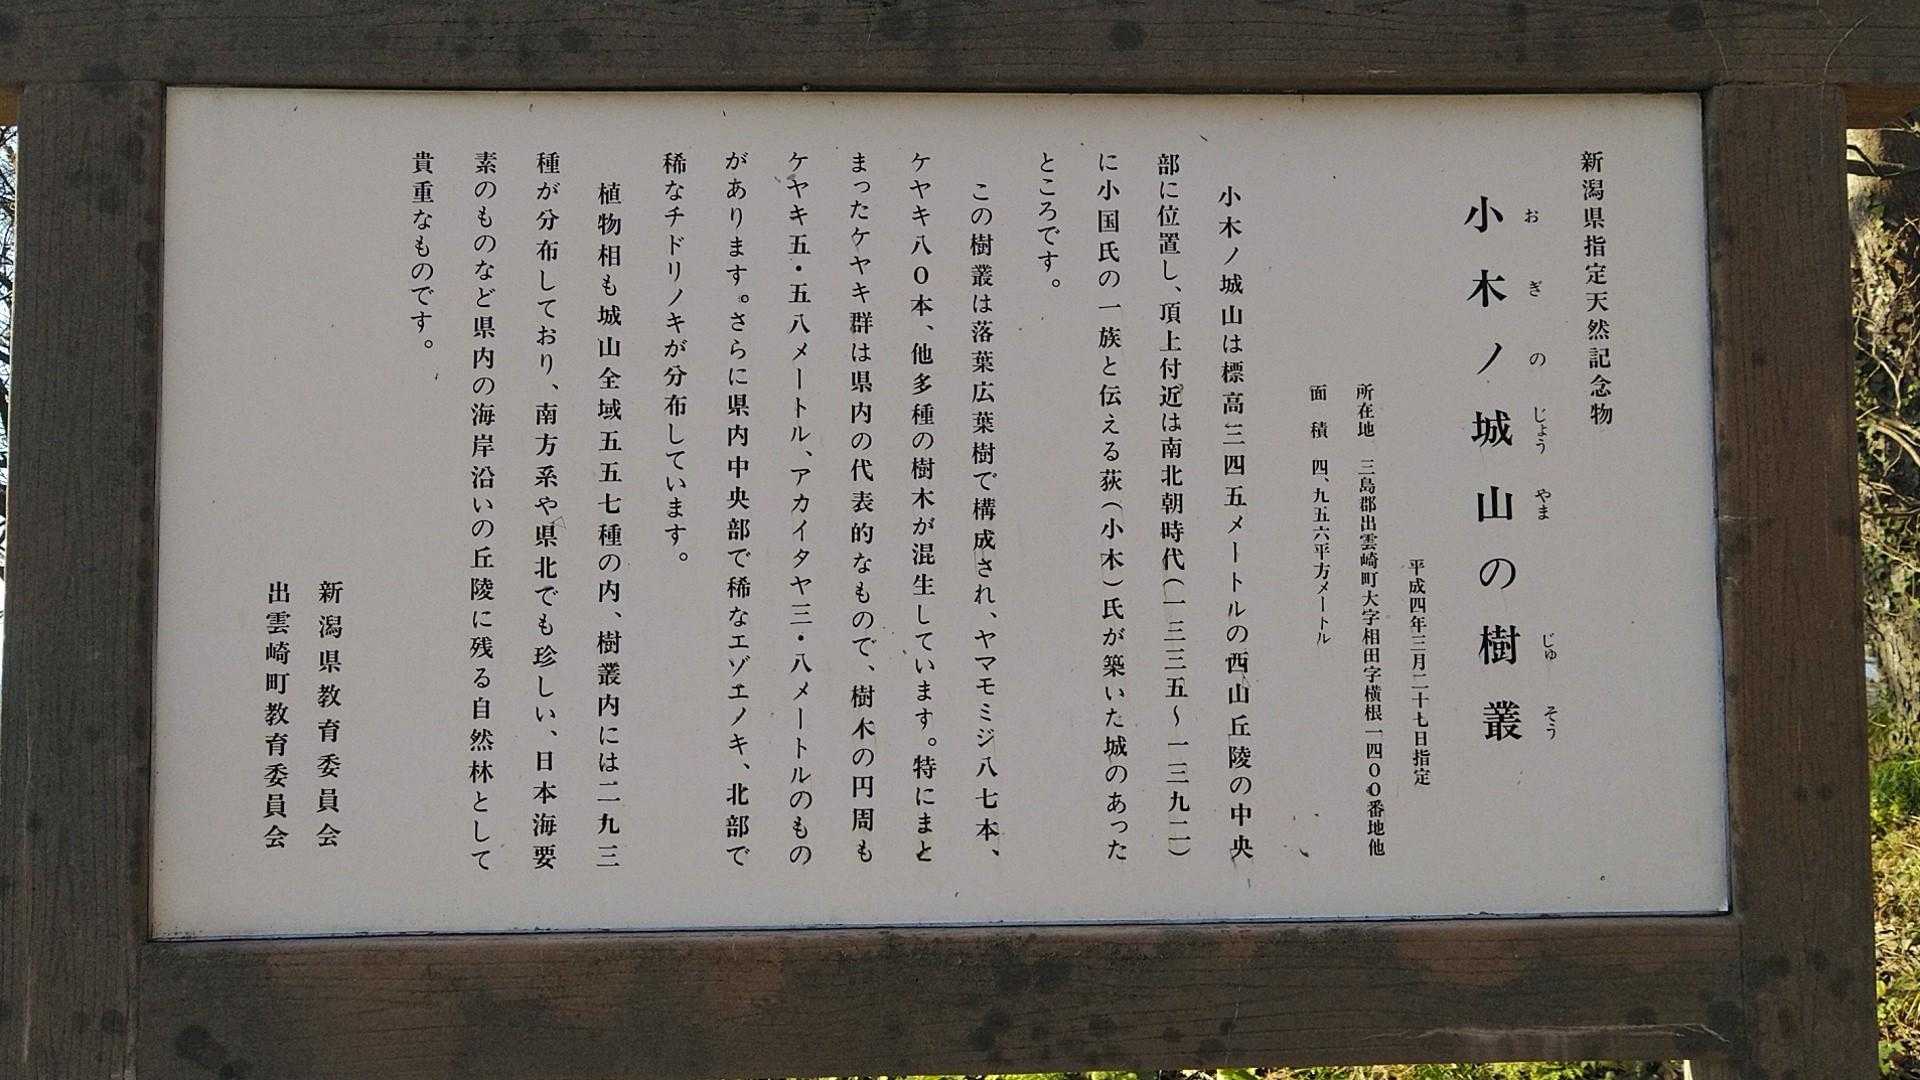 新潟県指定天然記念物
小木ノ城山の樹叢
おぎのじょうやまじゅそう
平成四年三月二十七日指定
所在地 三島郡出雲崎町大字相田字横根一四〇〇番地他
面 積 四、九五六平方メートル
小木ノ城山は標高三四五メートルの西山丘陵の中央
部に位置し、頂上付近は南北朝時代(一三三五～一三九二)
に小国氏の一族と伝える荻(小木)氏が築いた城のあった
ところです。
この樹叢は落葉広葉樹で構成され、ヤマモミジ八七本、
ケヤキ八〇本、他多種の樹木が混生しています。特にまと
まったケヤキ群は県内の代表的なもので、樹木の円周も
ケヤキ五・五八メートル、アカイタヤ三・八メートルのもの
があります。さらに県内中央部で稀なエゾエノキ、北部で
稀なチドリノキが分布しています。
植物相も城山全域五五七種の内、樹叢内には二九三
種が分布しており、南方系や県北でも珍しい、日本海要
素のものなど県内の海岸沿いの丘陵に残る自然林として
貴重なものです。
新潟県教育委員会
出雲崎町教育委員会